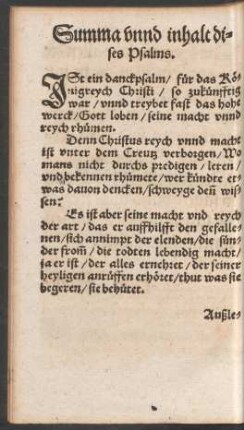 Summa vnnd inhalt di-
ses Psalms.
ISt ein danckpsalm / für das Kö-
nigreych Christi / so zukünfftig
war / vnnd treybet fast das hohe
werck / Gott loben / seine macht vnnd
reych rhümen.
Denn Christus reych vnnd macht
ist vnter dem Creutz verborgen / Wo
mans nicht durchs predigen / leren /
vnd bekennen rhümete / wer kündte et-
was dauon dencken / schweyge deñ wis-
sen?
Es ist aber seine macht vnd reych
der art / das er auffhilfft den gefalle-
nen / sich annimpt der elenden / die sün-
der from̃ / die todten lebendig macht /
ja er ist / der alles ernehret / der seiner
heyligen anrüffen erhöret / thut was sie
begeren / sie behütet.
Außle-